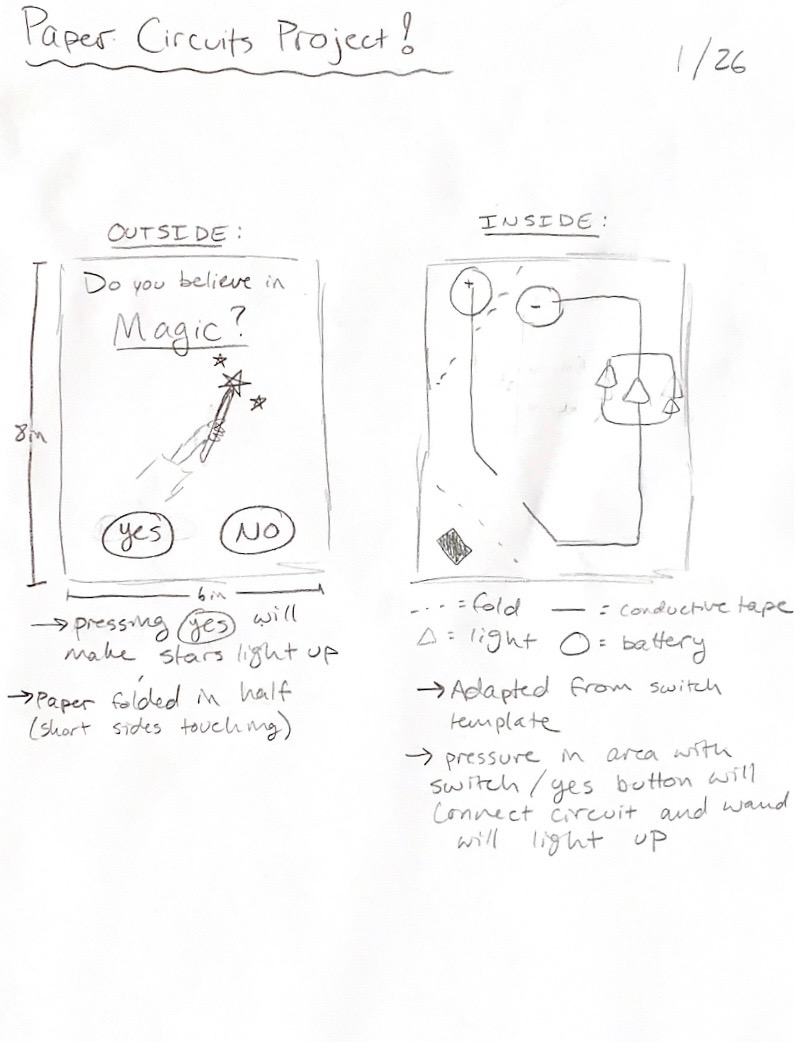 Paper Circuits Project!
1/26
OUTSIDE:
Do you believe in
Magic?
8in
yes
NO
6in
→ pressing yes will
make stars light up
→ Paper folded in half
(short sides touching)
INSIDE:
+
-
--- = fold — = conductive tape
△ = light ○ = battery
→ Adapted from switch
template
→ pressure in area with
switch/yes button will
connect circuit and wand
will light up